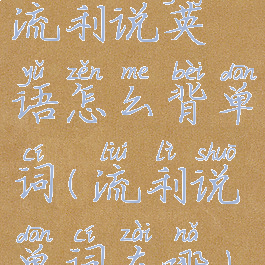 流利说英
yǔ zěn me bèi dān
语怎么背单
cí liú lì shuō
词(流利说
dān cí zài nǎ
单词在哪